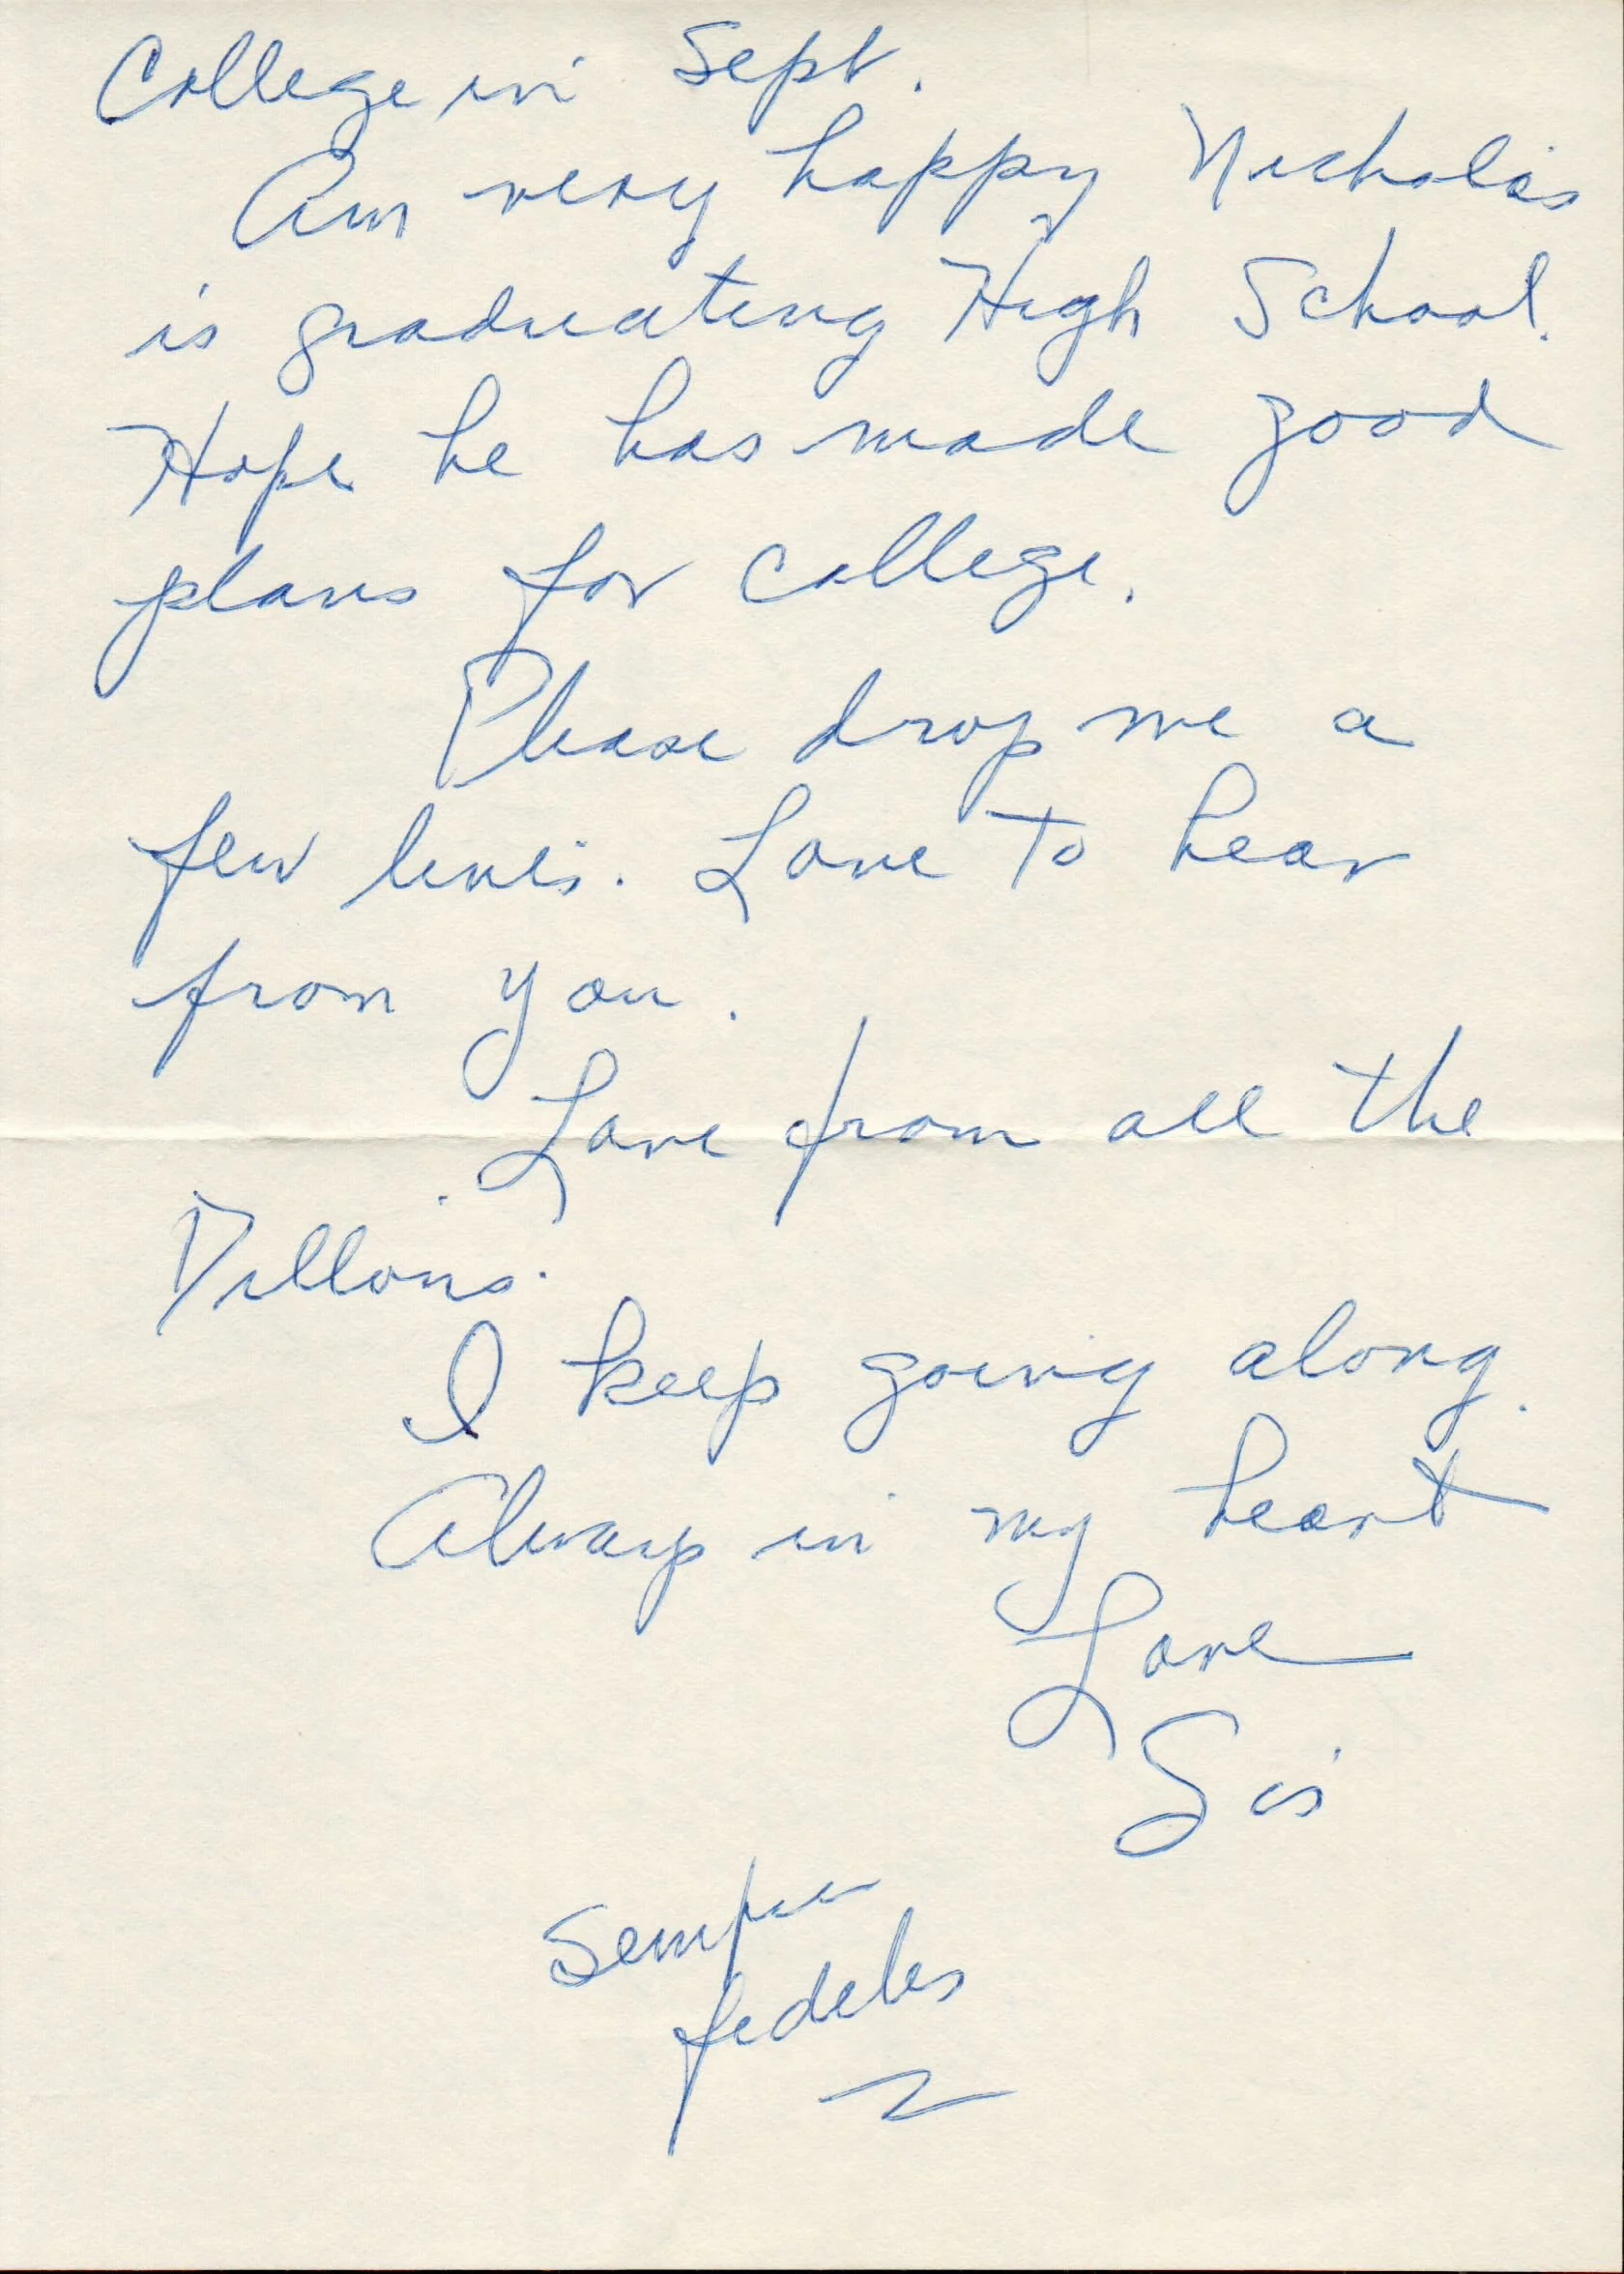 College in Sept.
Am very happy Nicholas
is graduating High School.
Hope he has made good
plans for college.
Please drop me a
few lines. Love to hear
from you.
Love from all the
Dillons.
I keep going along.
Always in my heart
Love
Sis
Semper
fedeles